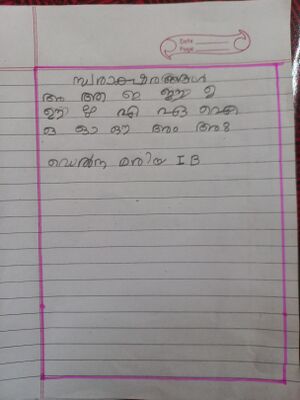 Date
Page
സ്വരാക്ഷരങ്ങൾ
അ ആ ഇ ഈ ഉ
ഊ ഋ എ ഏ ഐ
ഒ ഓ ഔ അം അഃ
ഡെൽന മരിയ I B